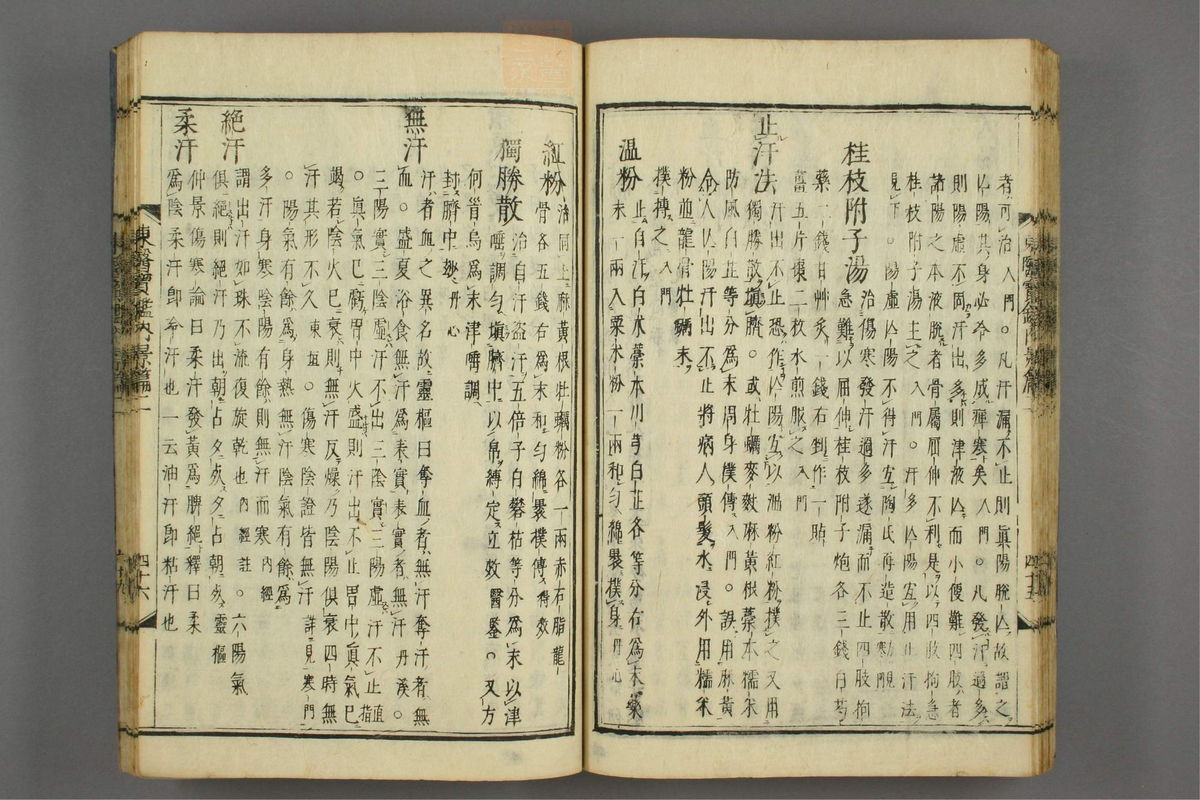 者可治入門。凡汗漏不止則眞陽脫亡故謂之
亡陽其身必冷多成痺寒矣入門。凡發汗過多
則陽虛不固汗出多則津液亡而小便難四肢者
諸陽之本液脫者骨屬屈伸不利是以四肢拘急
桂枝附子湯主之入門。汗多亡陽宜用止汗法
見下。陽虛亡陽不得汗宜陶氏再造散
桂枝附子湯 治傷寒發汗過多遂漏而不止四肢拘
急難以屈伸桂枝附子炮各三錢白芍
藥二錢甘艸炙一錢右剉作一貼
薑五片棗二枚水煎服之入門
止汗法 汗出不止恐作亡陽宜以溫粉紅粉撲之又用
獨勝散塡臍。或牡蠣麥麩麻黃根藁本糯米
防風白芷等分爲末周身撲傳入門。誤用麻黃
令人亡陽汗出不止將病人頭髮水浸外用糯米
粉並龍骨牡蠣末
撲搏之入門
温粉 止自汗白朮藁本川芎白芷各等分右爲末藥
末一兩入粟米粉一兩和勻綿裹撲身丹心
紅粉 治同上麻黃根牡蠣粉各一兩赤石脂龍
骨各五錢右爲末和勻綿裹撲傳得效
獨勝散 治自汗盜汗五倍子白礬枯等分爲末以津
唾調勻塡臍中以帛縛定立效醫鑒。又方
何首烏爲末津唾調
封臍中妙丹心
無汗 汗者血之異名故靈樞曰奪血者無汗奪汗者無
血。盛夏浴食無汗爲表實表實者無汗丹溪。
三陽實三陰虛汗不出三陰實三陽虛汗不止直指
。眞氣已虧胃中火盛則汗出不止胃中眞氣已
竭若陰火已衰則無汗反燥乃陰陽俱衰四時無
汗其形不久東垣。傷寒陰證皆無汗詳見寒門
。陽氣有餘爲身熱無汗陰氣有餘爲
多汗身寒陰陽有餘則無汗而寒內經
絕汗 謂出汗如珠不流復旋乾也內經註。六陽氣
俱絕則絕汗乃出朝占夕死夕占朝死靈樞
柔汗 仲景傷寒論曰柔汗發黃爲脾絕釋曰柔
爲陰柔汗卽冷汗也一云油汗卽粘汗也
東醫寶鑑內景篇二
四十五
東醫寶鑑內景篇二
四十六